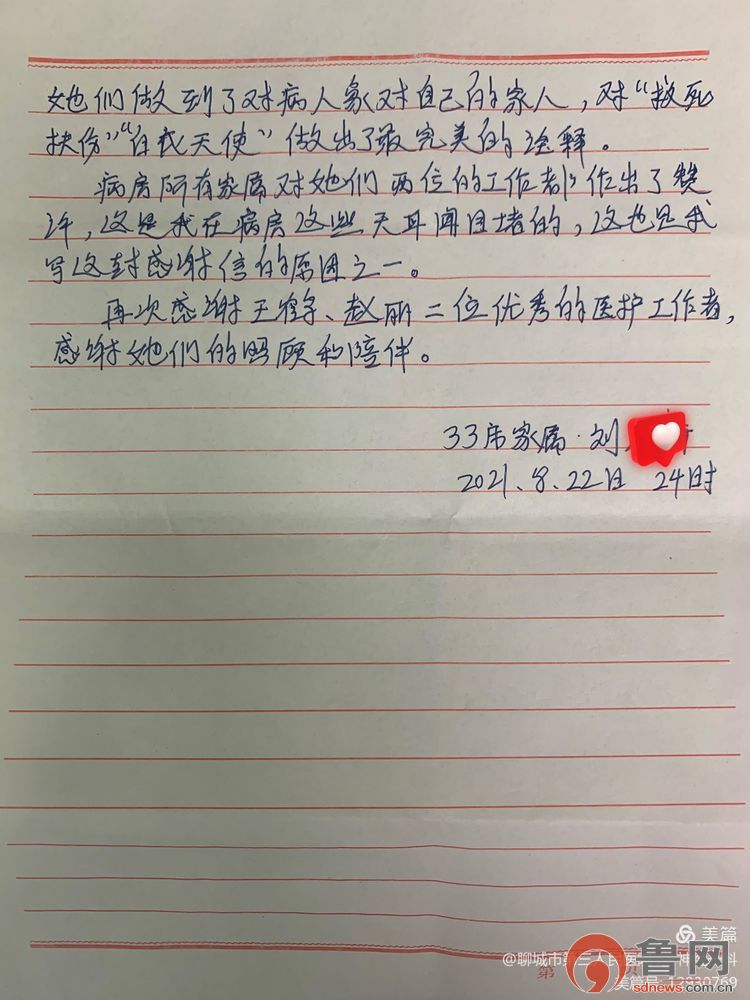 她们做到了对病人象对自己的家人，对“救死
扶伤”“白衣天使”做出了最完美的诠释。
病房所有家属对她们两位的工作都作出了赞
许，这是我在病房这些天耳闻目堵的，这也是我
写这封感谢信的原因之一。
再次感谢王、赵丽二位优秀的医护工作者，
感谢她们的照顾和陪伴。
33床家属·刘
2021.8.22日 24时
美篇
@聊城市第三人民医
第
美篇号:12980769
鲁网
sdnews.com.cn